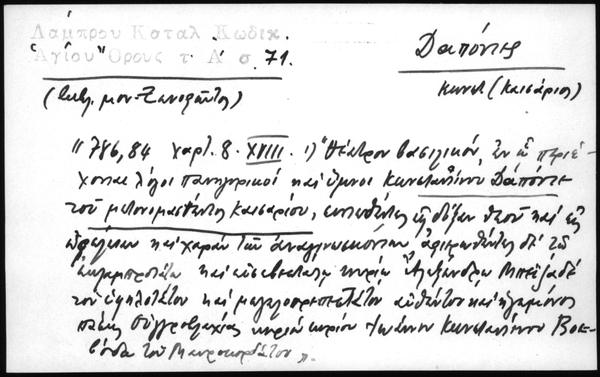 Λάμπρου Καταλ Κωδικ.
Ἁγίου Ὄρους τ. Α΄ σ. 71.
Δαπόντες
(Βιβ. μον. Ξηροποτ)
Κωνστ (Καισάριος)
"786,84 χαρτ. 8. XVIII. 1) "Θέατρον βασιλικόν, ἐν ᾧ περιέ-
χονται λόγοι πανηγυρικοί καί ὕμνοι Κωνσταντίνου Δαπόντε
τοῦ μετονομασθέντος Καισαρίου, συντεθέντες εἰς δόξαν θεοῦ καί εἰς
ὠφέλειαν καί χαράν τῶν ἀναγινωσκόντων, ἀφιερωθέντες δέ τῷ
ἐκλαμπροτάτῳ καί εὐσεβεστάτῳ κυρίῳ Ἀλεξάνδρῳ Μπεϊζαδέ
τοῦ ὑψηλοτάτου καί μεγαλοπρεπεστάτου αὐθέντου καί ἡγεμόνος
πάσης Οὐγγροβλαχίας κυρίου κυρίου Ἰωάννου Κωνσταντίνου Βοε-
βόνδα τοῦ Μαυροκορδάτου".